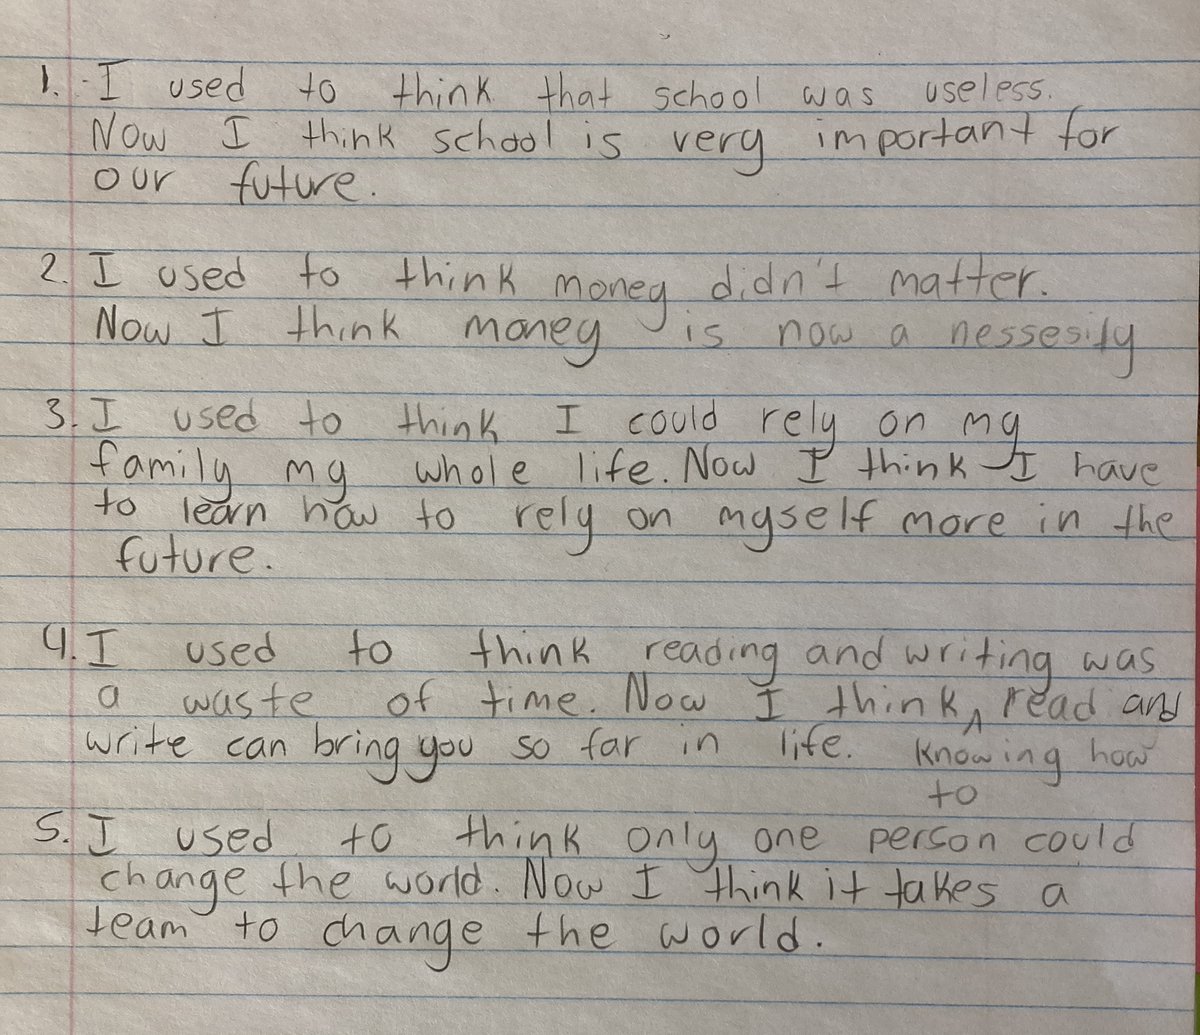 1. I used to think that school was useless.
Now I think school is very important for
our future.
2. I used to think money didn't matter.
Now I think money is now a nessesity
3. I used to think I could rely on my
family my whole life. Now I think I have
to learn how to rely on myself more in the
future.
4. I used to think reading and writing was
a waste of time. Now I think ^ read and
write can bring you so far in life. knowing how
to
5. I used to think only one person could
change the world. Now I think it takes a
team to change the world.